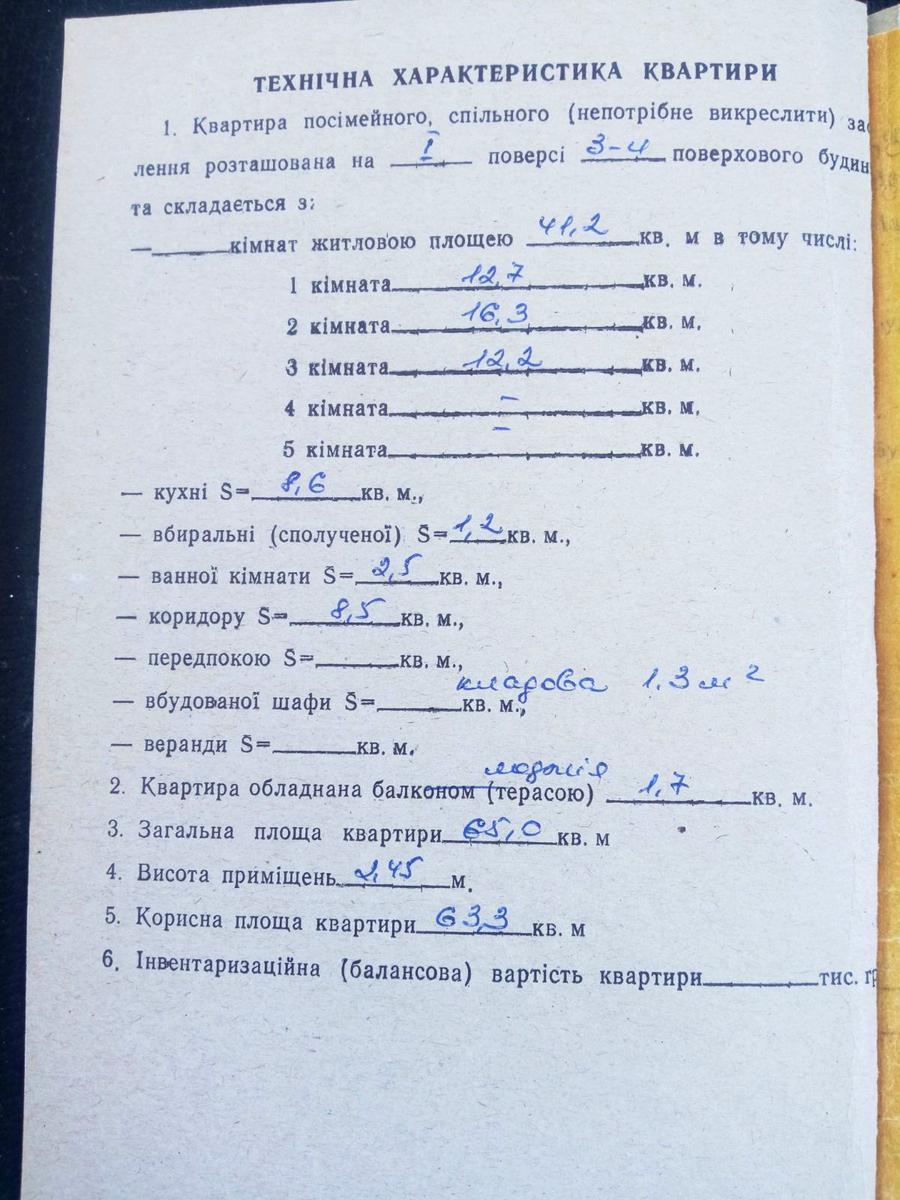 ТЕХНІЧНА ХАРАКТЕРИСТИКА КВАРТИРИ
1. Квартира посімейного, спільного (непотрібне викреслити) зас
лення розташована на I поверсі 3-4 поверхового будин
та складається з:
— ______ кімнат житлового площею 41,2 кв. м в тому числі:
1 кімната 12,7 кв. м.
2 кімната 16,3 кв. м.
3 кімната 12,2 кв. м.
4 кімната – кв. м.
5 кімната – кв. м.
— кухні S= 8,6 кв. м.,
— вбиральні (сполученої) S= 1,2 кв. м.,
— ванної кімнати S= 2,5 кв. м.,
— коридору S= 8,5 кв. м.,
— передпокою S=______ кв. м.,
кладова 1,3 м²
— вбудованої шафи S=______ кв. м.,
— веранди S=______ кв. м.
лоджія
2. Квартира обладнана балконом (терасою) 1,7 кв. м.
3. Загальна площа квартири 65,0 кв. м
4. Висота приміщень 2,45 м.
5. Корисна площа квартири 63,3 кв. м
6. Інвентаризаційна (балансова) вартість квартири______ тис. гр